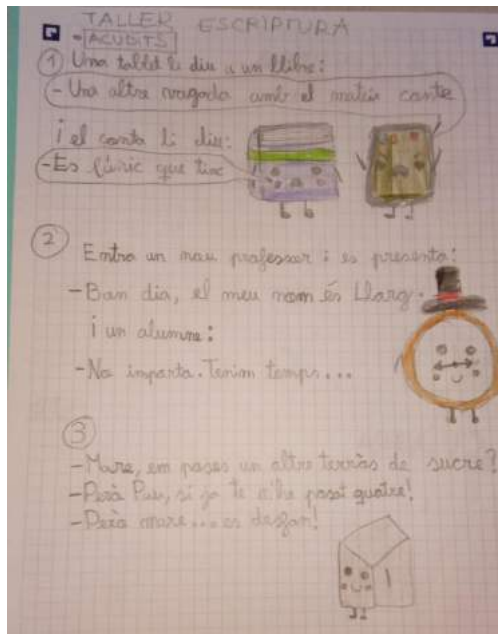 TALLER ESCRIPTURA
- ACUDITS
1 Una tablet li diu a un llibre:
- Una altre vagada amb el mateix conte
i el conta li diu:
- Es l'únic que tinc
2
Entra un nou professor i es presenta:
- Bon dia, el meu nom és Llarg.
i un alumne:
- No importa. Tenim temps...
3
- Mare, em pases un altre terròs de sucre?
- Però Pau, si ja te n'he pasat quatre!
- Però mare... es desfan!